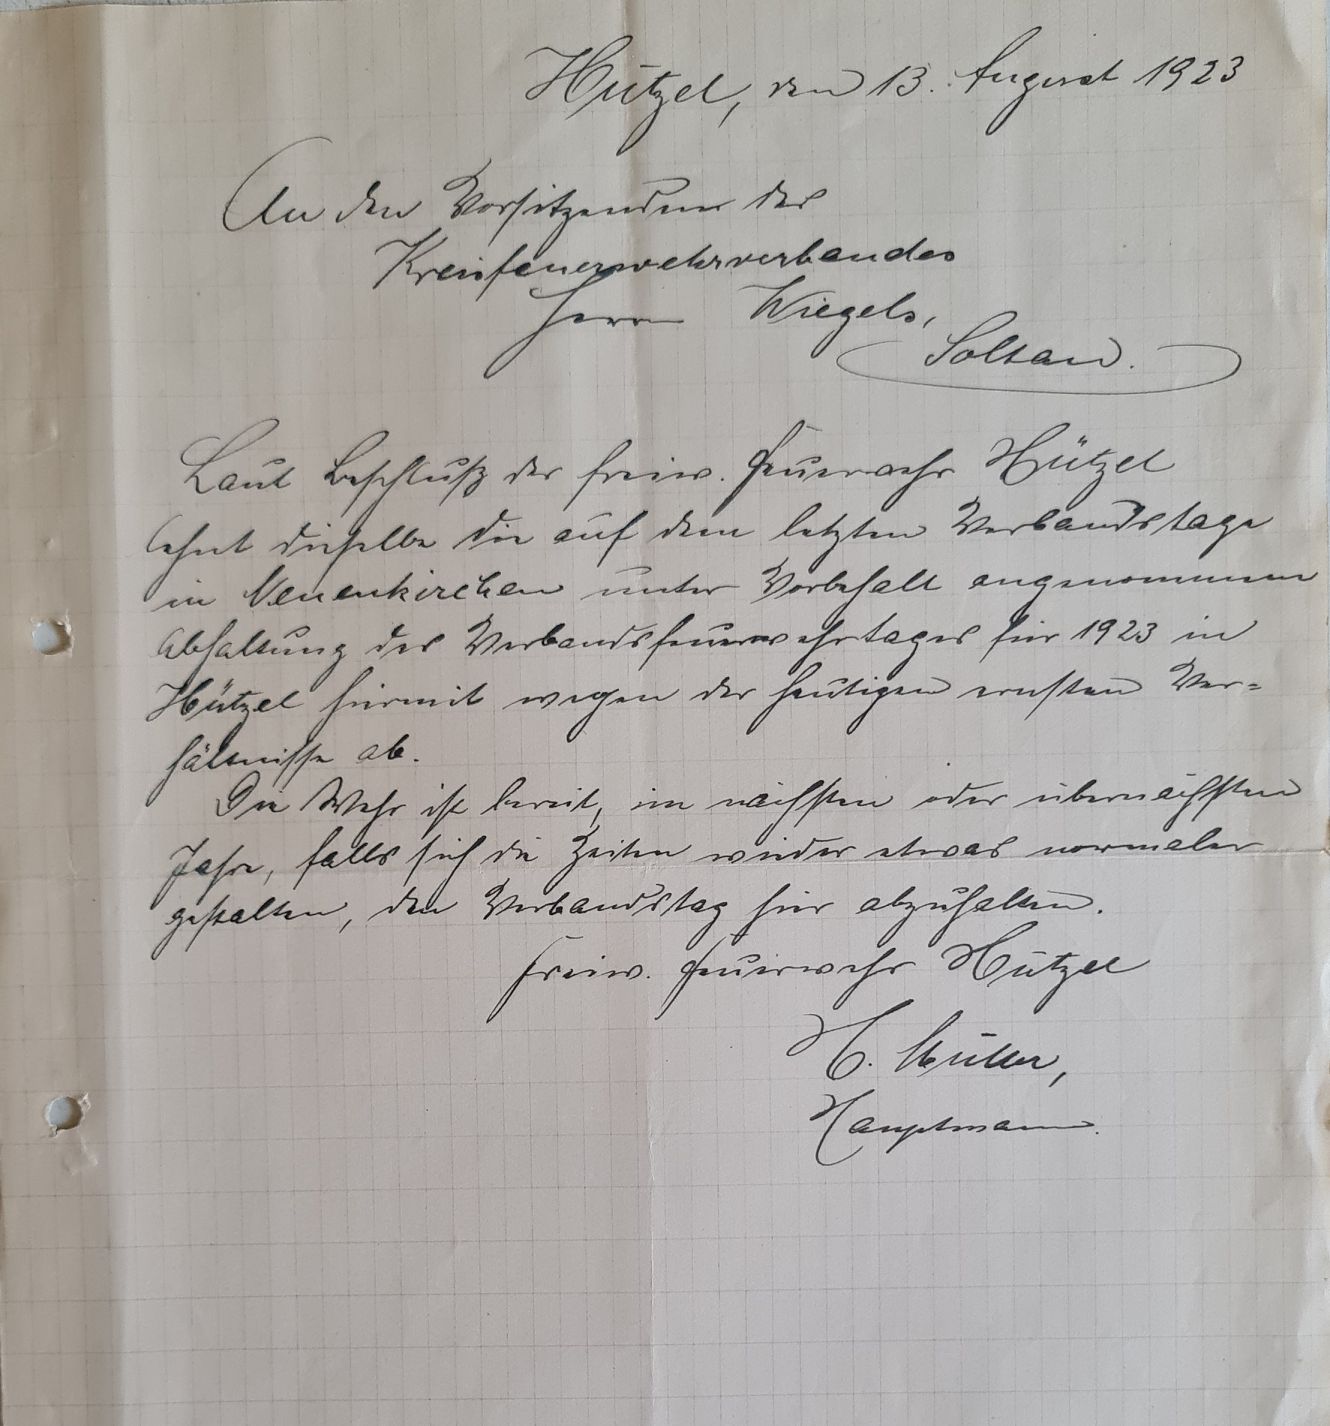 Hützel, den 13. August 1923
An den Vorsitzenden des
Kreisfeuerwehrverbandes
Herrn Wiegels,
Soltau.
Laut Beschluß der freiw. Feuerwehr Hützel
lehnt dieselbe die auf dem letzten Verbandstage
in Neuenkirchen unter Vorbehalt angenommene
Abhaltung des Verbandsfeuerwehrtages für 1923 in
Hützel hiermit wegen der heutigen ernsten Ver=
hältnisse ab.
Die Wehr ist bereit, im nächsten oder übernächsten
Jahre, falls sich die Zeiten wieder etwas normaler
gestalten, den Verbandstag hier abzuhalten.
Freiw. Feuerwehr Hützel
H. Müller,
Hauptmann.